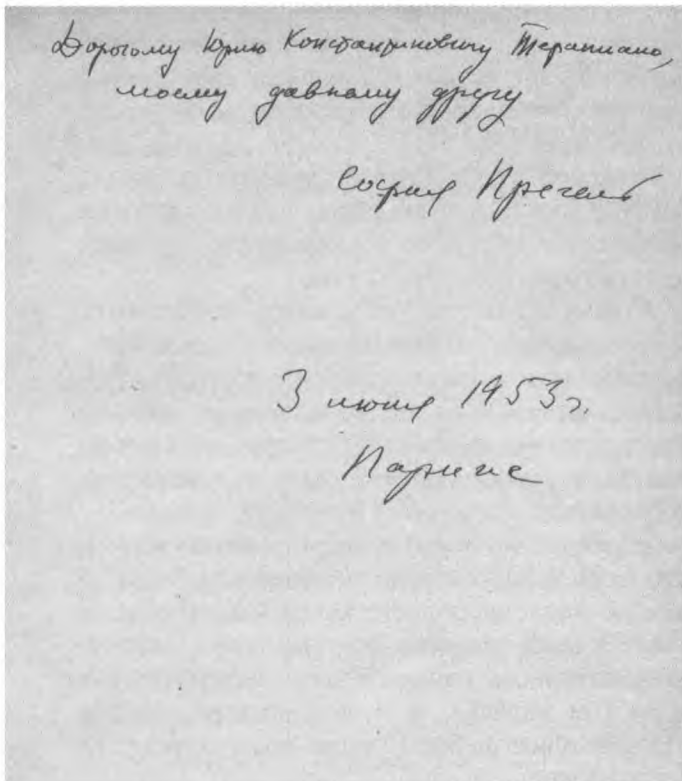 Дорогому Юрию Константиновичу Терапиано,
моему давнему другу
София Прегель
3 июня 1953 г.
Париж